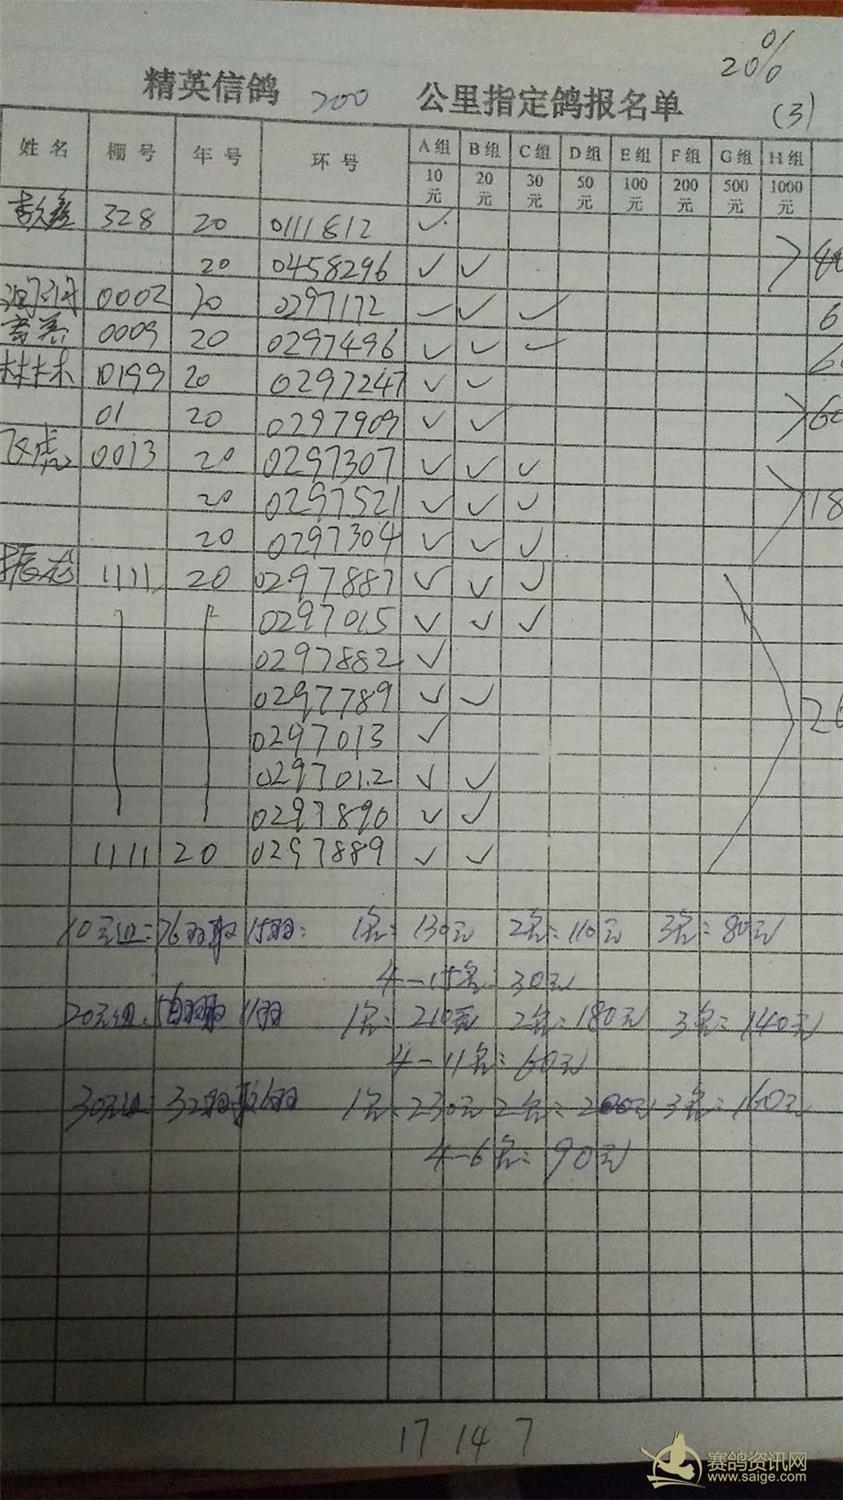 20%
精英信鸽 200 公里指定鸽报名单
(3)
姓名 棚号 年号 环号 A组 B组 C组 D组 E组 F组 G组 H组
10元 20元 30元 50元 100元 200元 500元 1000元
328 20 0111612 ✓
20 0458296 ✓ ✓
0002 20 0297172 ✓ ✓ ✓ 6
0009 20 0297496 ✓ ✓ ✓
林木 0199 20 0297247 ✓ ✓
01 20 0297909 ✓ ✓ 60
飞虎 0013 20 0297307 ✓ ✓ ✓
20 0297521 ✓ ✓ ✓ 18
20 0297304 ✓ ✓ ✓
振龙 1111 20 0297887 ✓ ✓ ✓
0297015 ✓ ✓ ✓
0297882 ✓
0297789 ✓ ✓
0297013 ✓
0297012 ✓ ✓
0297890 ✓ ✓
1111 20 0297889 ✓ ✓
10元组:76羽取15羽: 1名:130元 2名:110元 3名:80元
4-15名:30元
20元组:56羽取11羽 1名:210元 2名:180元 3名:140元
4-11名:60元
30元组:32羽取6羽 1名:230元 2名:200元 3名:160元
4-6名:90元
17 14 7
赛鸽资讯网
www.saige.com